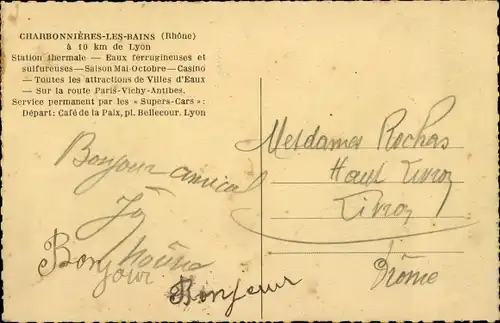 CHARBONNIÈRES-LES-BAINS (Rhône)
à 10 km de Lyon
Station thermale — Eaux ferrugineuses et
sulfureuses — Saison Mai-Octobre — Casino
— Toutes les attractions de Villes d'Eaux
— Sur la route Paris-Vichy-Antibes.
Service permanent par les « Supers-Cars » :
Départ: Café de la Paix, pl. Bellecour. Lyon
Mesdames Rochas
Haut Livron
Livron
Drôme
Bonjour amical
Bonjour
Bonjour